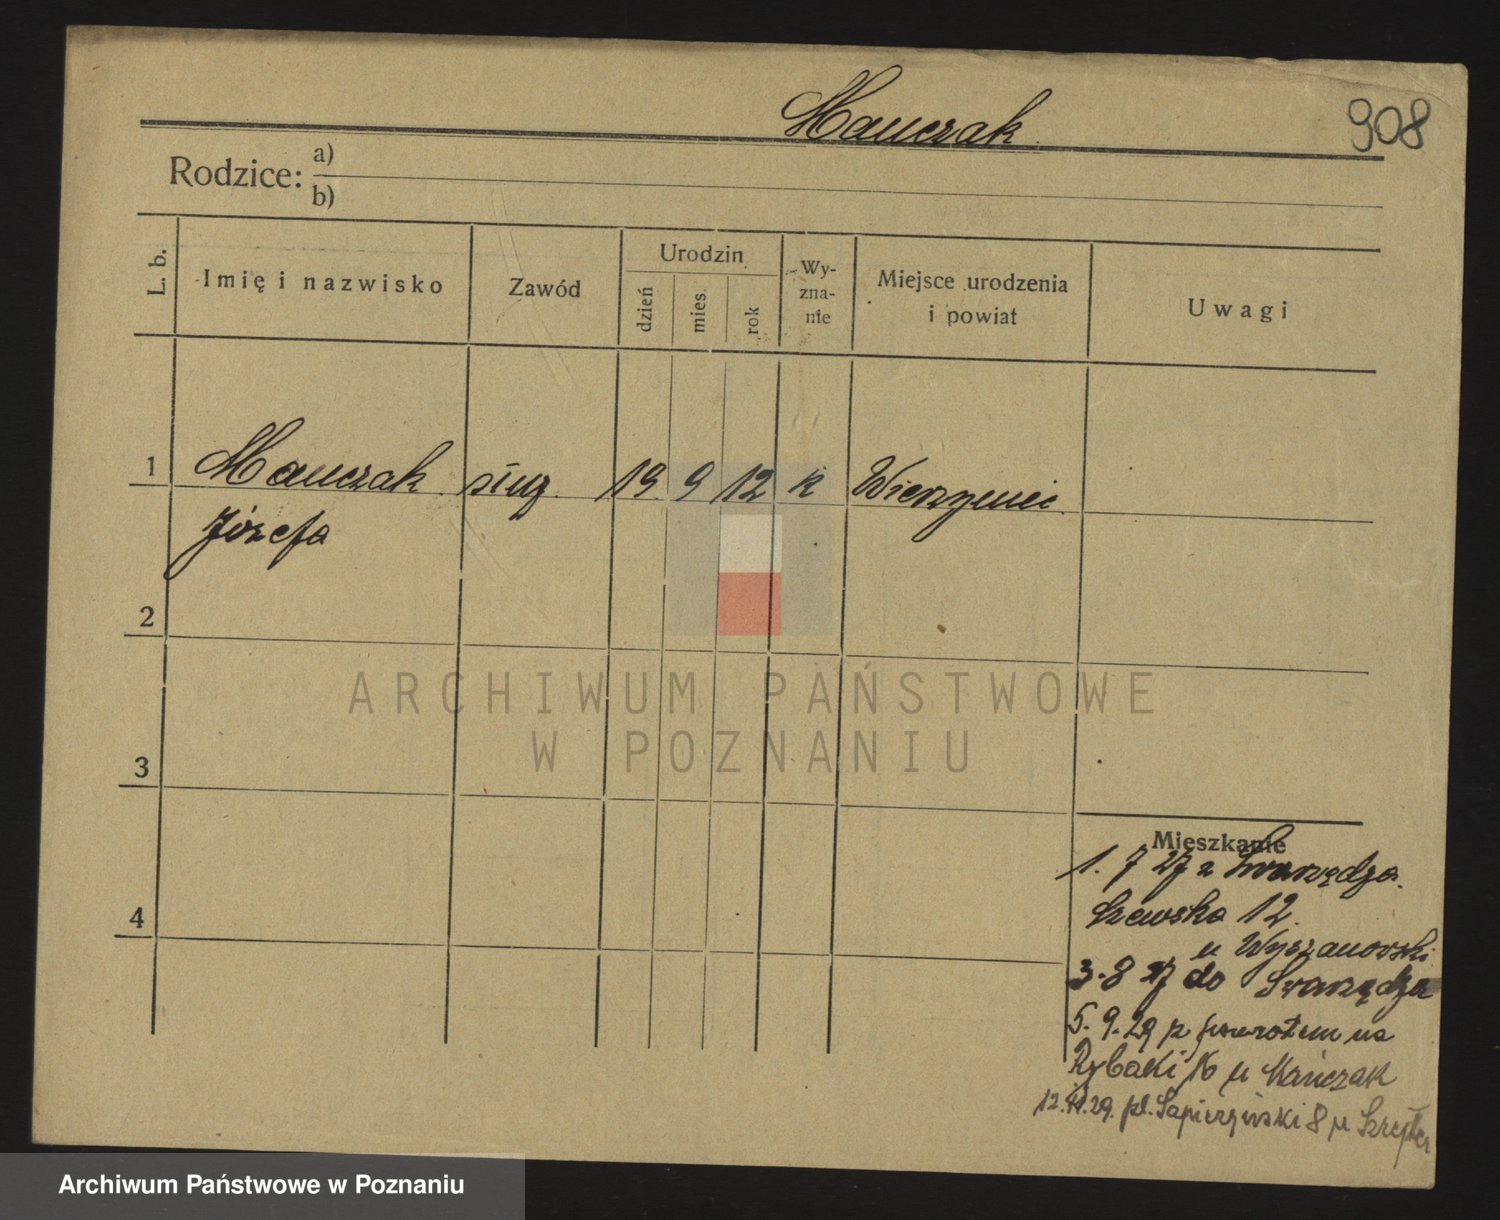 Manczak
908
Rodzice: a)
b)
L. b.
Imię i nazwisko
Zawód
Urodzin
dzień
mies.
rok
Wy-
zna-
nie
Miejsce urodzenia
i powiat
Uwagi
1 Manczak służ. 19 9 12 k Wierzenic
Józefa
2
3
4
ARCHIWUM PAŃSTWOWE
W POZNANIU
Mieszkanie
1. 7 27 z Swarzędza.
Szewska 12.
u Wyszanowski
3-8 27 do Swarzędza
5. 9. 29 z powrotem na
Rybaki 16 u Mańczak
12. 11. 29. pl. Sapieżyński 8 u
Archiwum Państwowe w Poznaniu